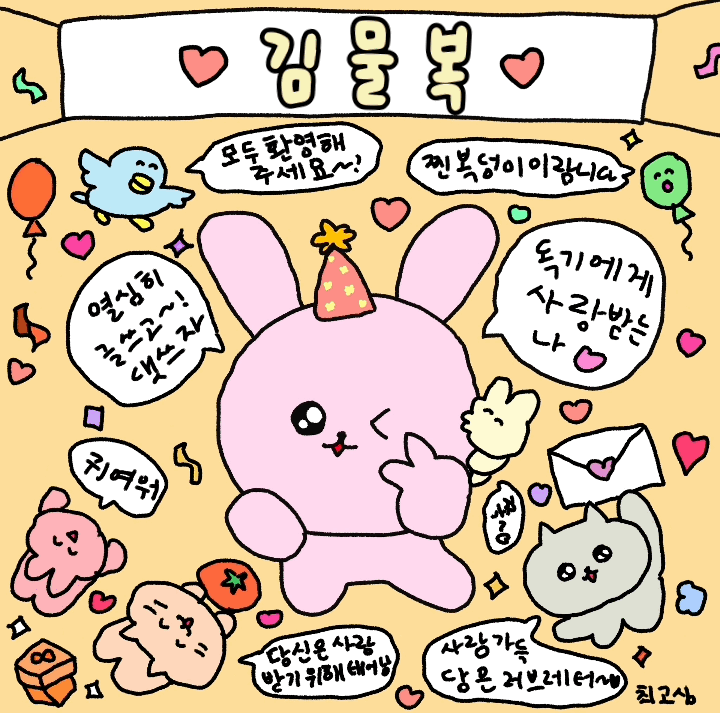 김물복
모두 환영해
주세요~!
찐복덩이이랍니다
열심히
글쓰고~!
댓쓰자
독기에게
사랑받는
나
귀여워
찡긋
당신은 사랑
받기위해 태어난
사랑가득
담은 러브레터~
최고심